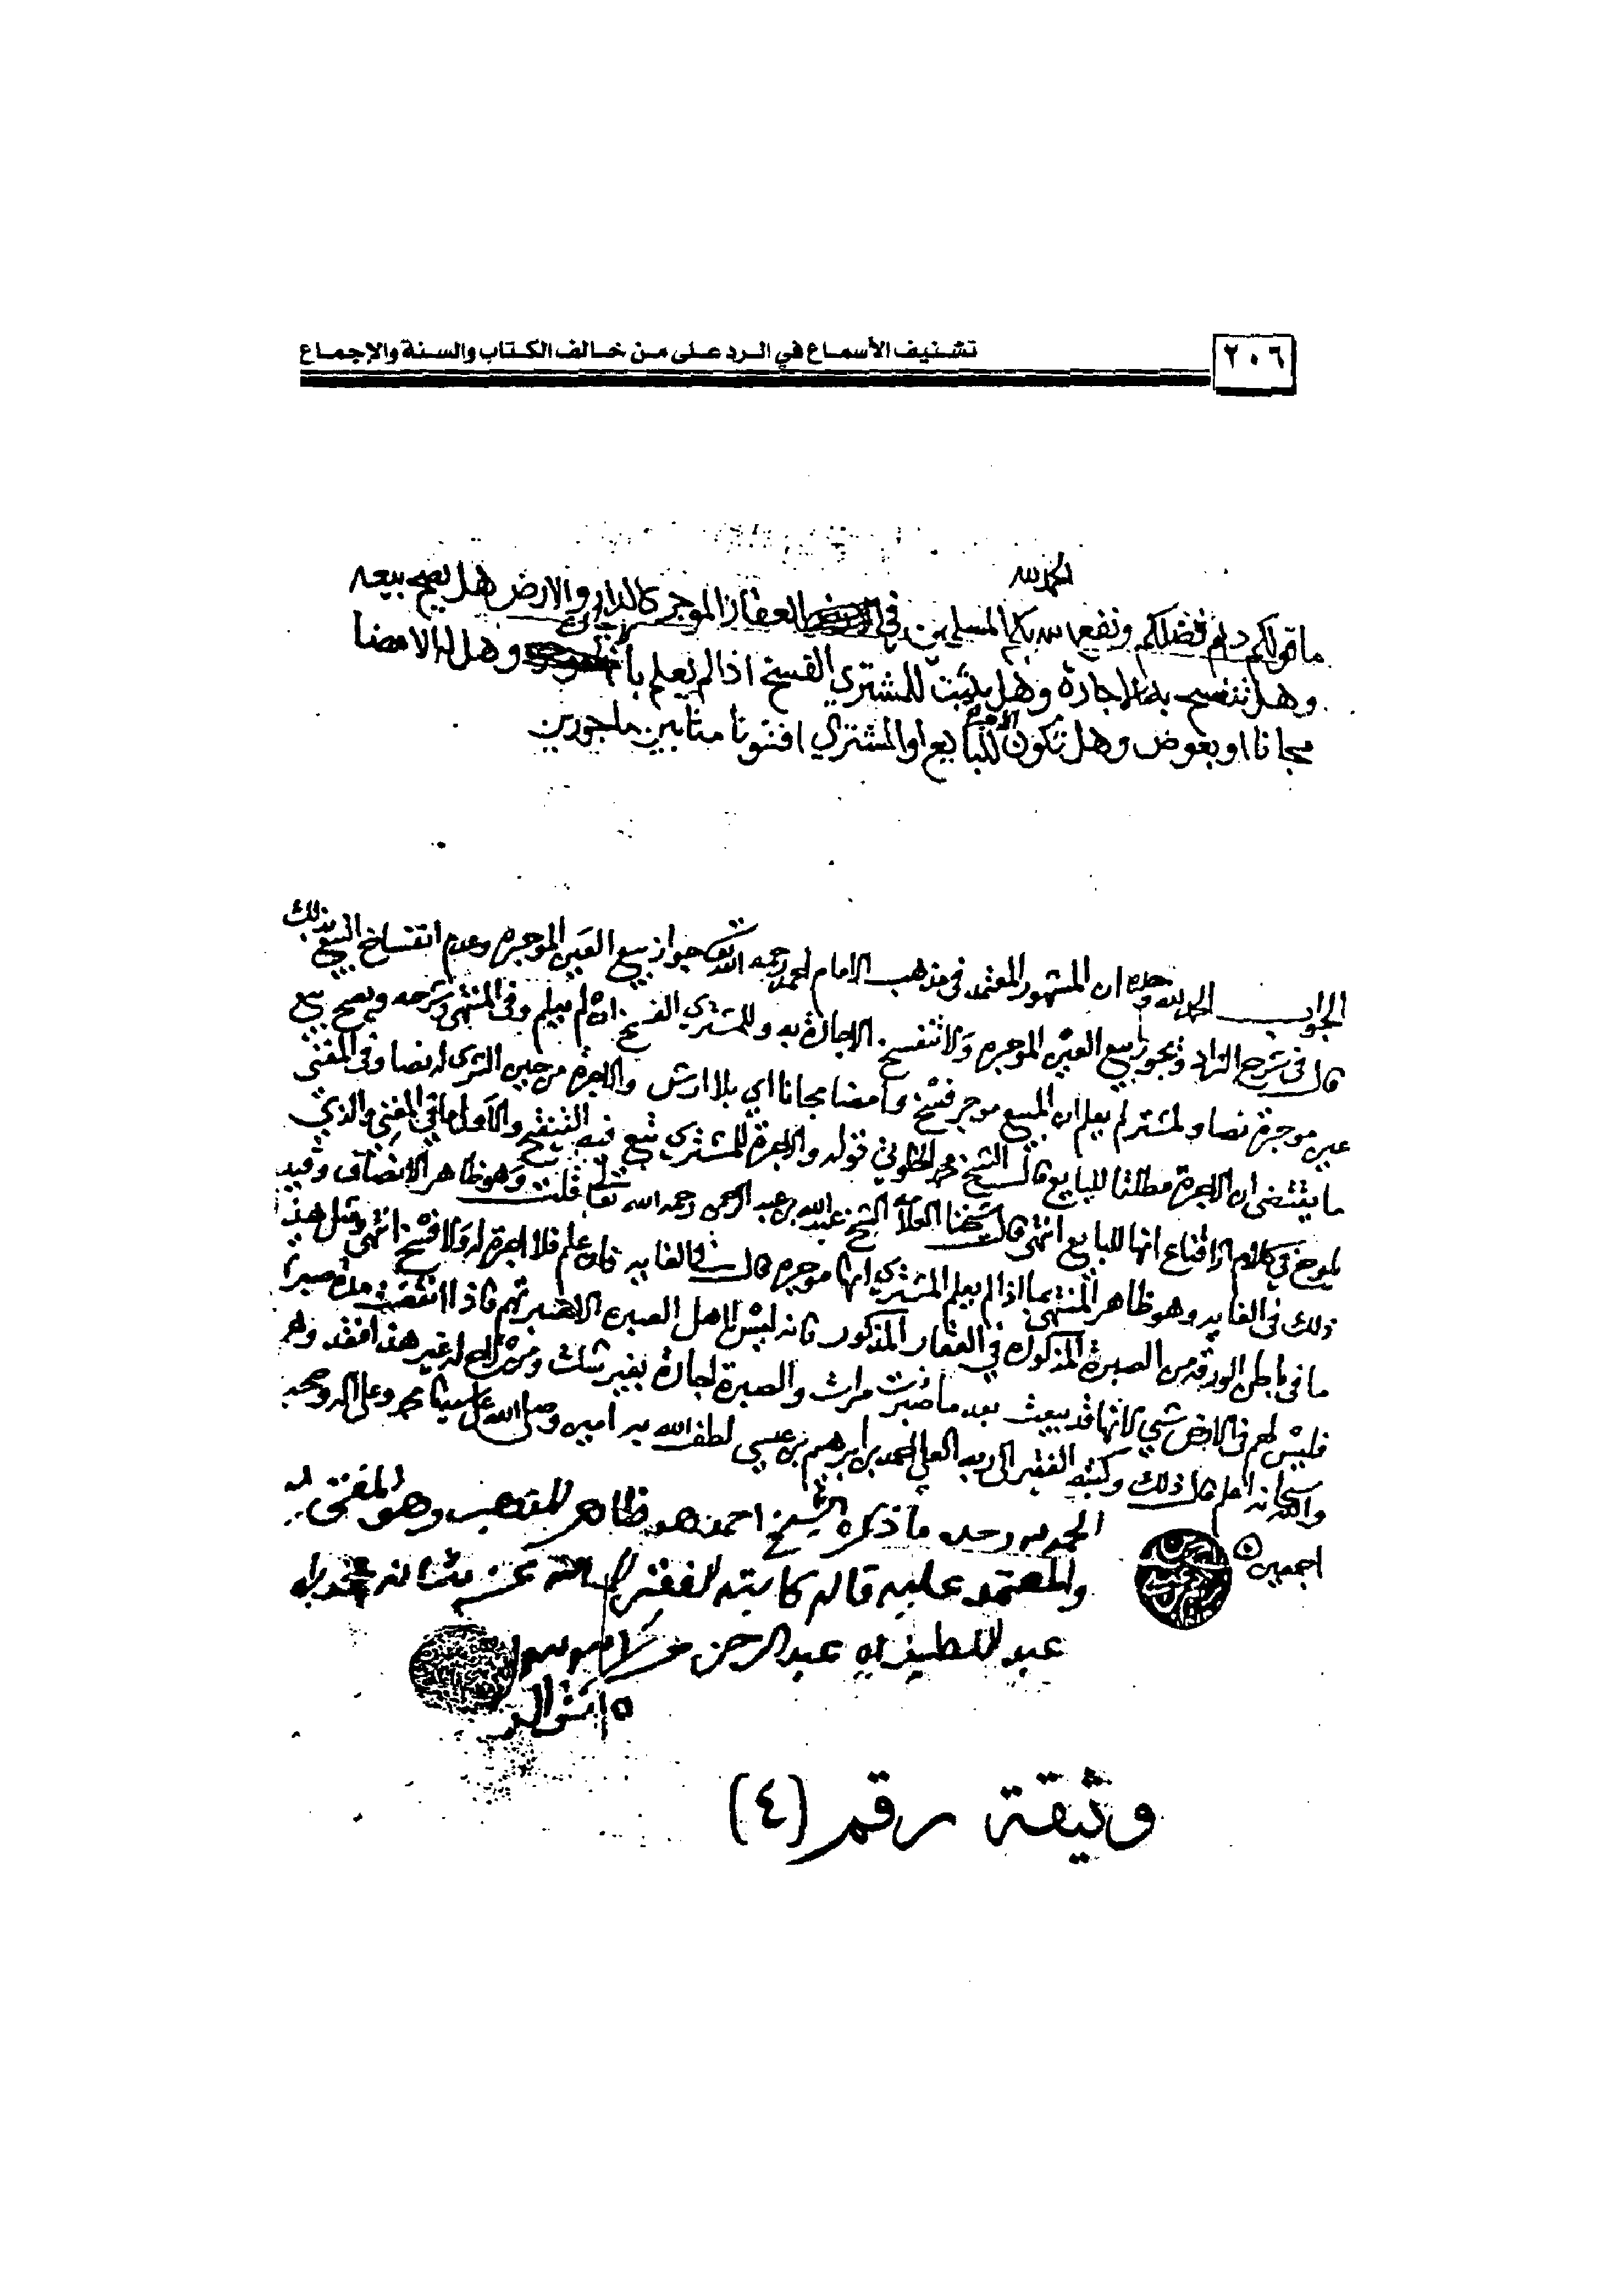 ٢٠٦
تشنيف الأسماع في الرد على من خالف الكتاب والسنة والإجماع
الحمد لله
ما قولكم دام فضلكم ونفع الله بكم المسلمين في العقار الموجر كالدار والارض هل يصح بيعه
وهل تنفسخ به الاجارة وهل يثبت للمشتري الفسخ اذا لم يعلم وهل له الامضا
مجانا او بعوض وهل تكون الاجرة للبايع او المشتري افتونا مثابين ماجورين
الجواب الحمد لله وحده ان المشهور المعتمد في مذهب الامام احمد رحمه الله تعالى جواز بيع العين الموجرة وعدم انفساخ البيع بذلك
قال في شرح الزاد ويجوز بيع العين الموجرة ولا تنفسخ الاجارة به وللمشتري الفسخ ان لم يعلم وفي المنتهى وشرحه ويصح بيع
عين موجرة نصا ولمشتر لم يعلم ان المبيع موجر فسخ وامضا مجانا اي بلا ارش والاجرة من حين الشرى له نصا وفي المغني
ما يقتضي ان الاجرة مطلقا للبايع قال الشيخ محمد الخلوتي قوله والاجرة للمشتري تبع فيه التنقيح والاول ما في المغني والذي
يلوح في كلام الاقناع انها للبايع انتهى قال شيخنا العلامة الشيخ عبد الله بن عبد الرحمن رحمه الله تعالى قلت وهو ظاهر الانصاف وقيد
ذلك في الغاية وهو ظاهر المنتهى بما اذا لم يعلم المشتري انها موجرة قال في الغاية فان علم فلا اجرة له ولا فسخ انتهى ومثل هذه
ما في باطن الورقة من الصبرة المذكورة في العقار المذكور فانه ليس لاهل الصبرة الا صبرتهم فاذا انقضت مدة صبرة
فليس لهم في الارض شي لانها قد بيعت بعد ما صبرت مرات والصبرة اجارة بغير شك ومن له غير هذا افقد وهو
والله سبحانه اعلم قال ذلك وكتبه الفقير الى ربه العلي احمد بن ابرهيم بن عيسى لطف الله به امين وصلى الله على سيدنا محمد وعلى اله وصحبه
اجمعين
الحمد لله وحده ما ذكره الشيخ احمد هو ظاهر المذهب وهو المفتى به
والمعتمد عليه قاله كاتبه الفقير الى الله عز شانه
عبد اللطيف بن عبد الرحمن
وثيقة رقم (٤)